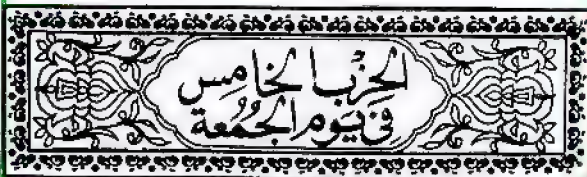 الحِزْبُ الخَامِس
فِي يَوْمِ الجُمُعَة